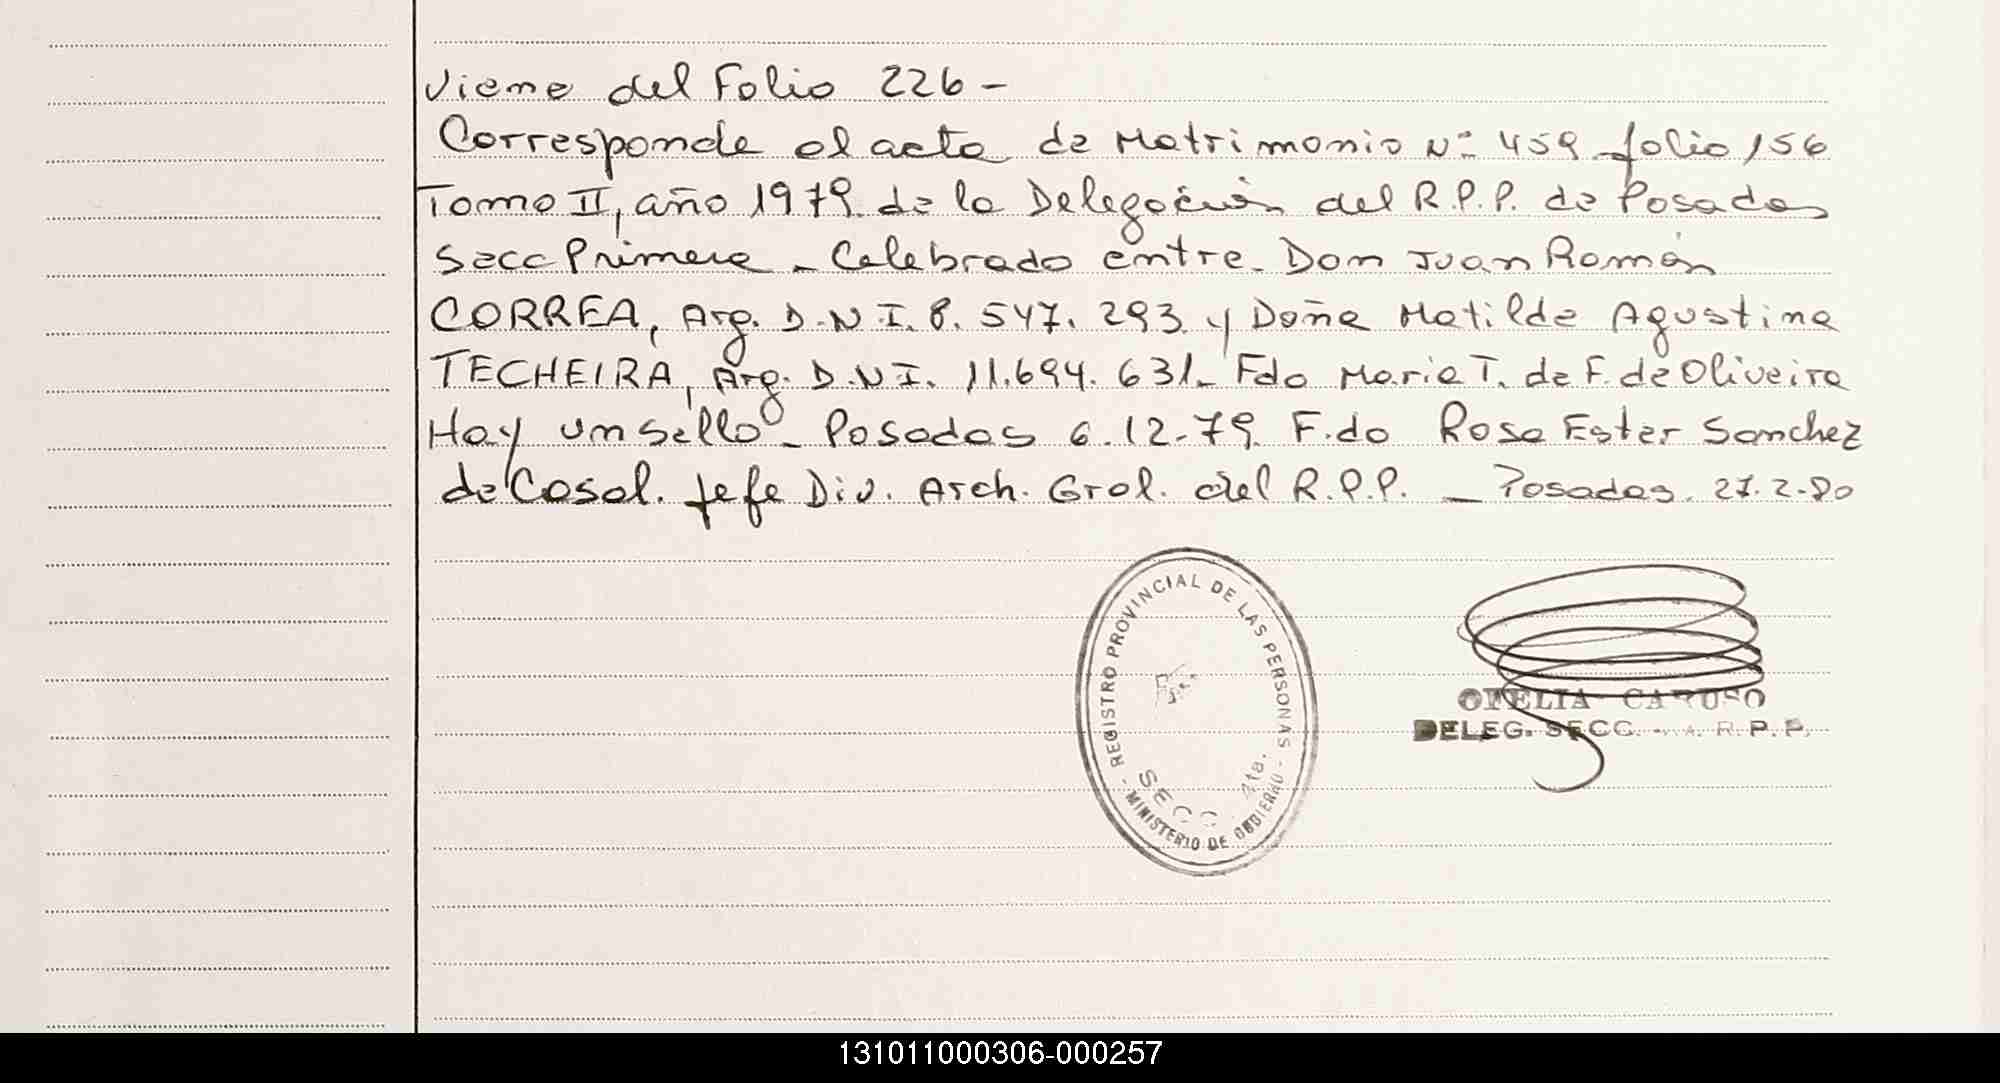 Viene del Folio 226 -
Corresponde al acta de Matrimonio Nº 459 folio 156
Tomo II, año 1979. de la Delegación del R.P.P. de Posadas
Secc Primera - Celebrado entre - Don Juan Román
CORREA, Arg. D.N.I. 8.547.293 y Doña Matilde Agustina
TECHEIRA, Arg. D.N.I. 11.694.631 - Fdo Maria T. de F. de Oliveira
Hay un sello - Posadas 6.12-79 F.do Rosa Ester Sanchez
de Casal. Jefe Div. Arch. Gral. del R.P.P. - Posadas. 27.2-80
- REGISTRO PROVINCIAL DE LAS PERSONAS -
SECC 4ta.
MINISTERIO DE GOBIERNO
OFELIA CARUSO
DELEG. SECC. R. P. P.
131011000306-000257